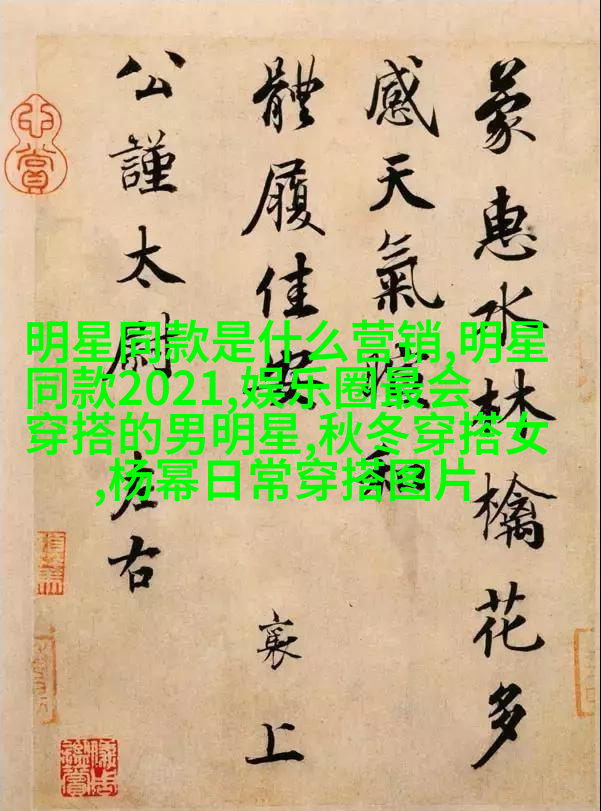 蒙惠水林檎花多
感天氣和
體履佳安
襄上
公謹太尉左右
明星同款是什么营销,明星
同款2021,娱乐圈最会
穿搭的男明星,秋冬穿搭女
,杨幂日常穿搭图片